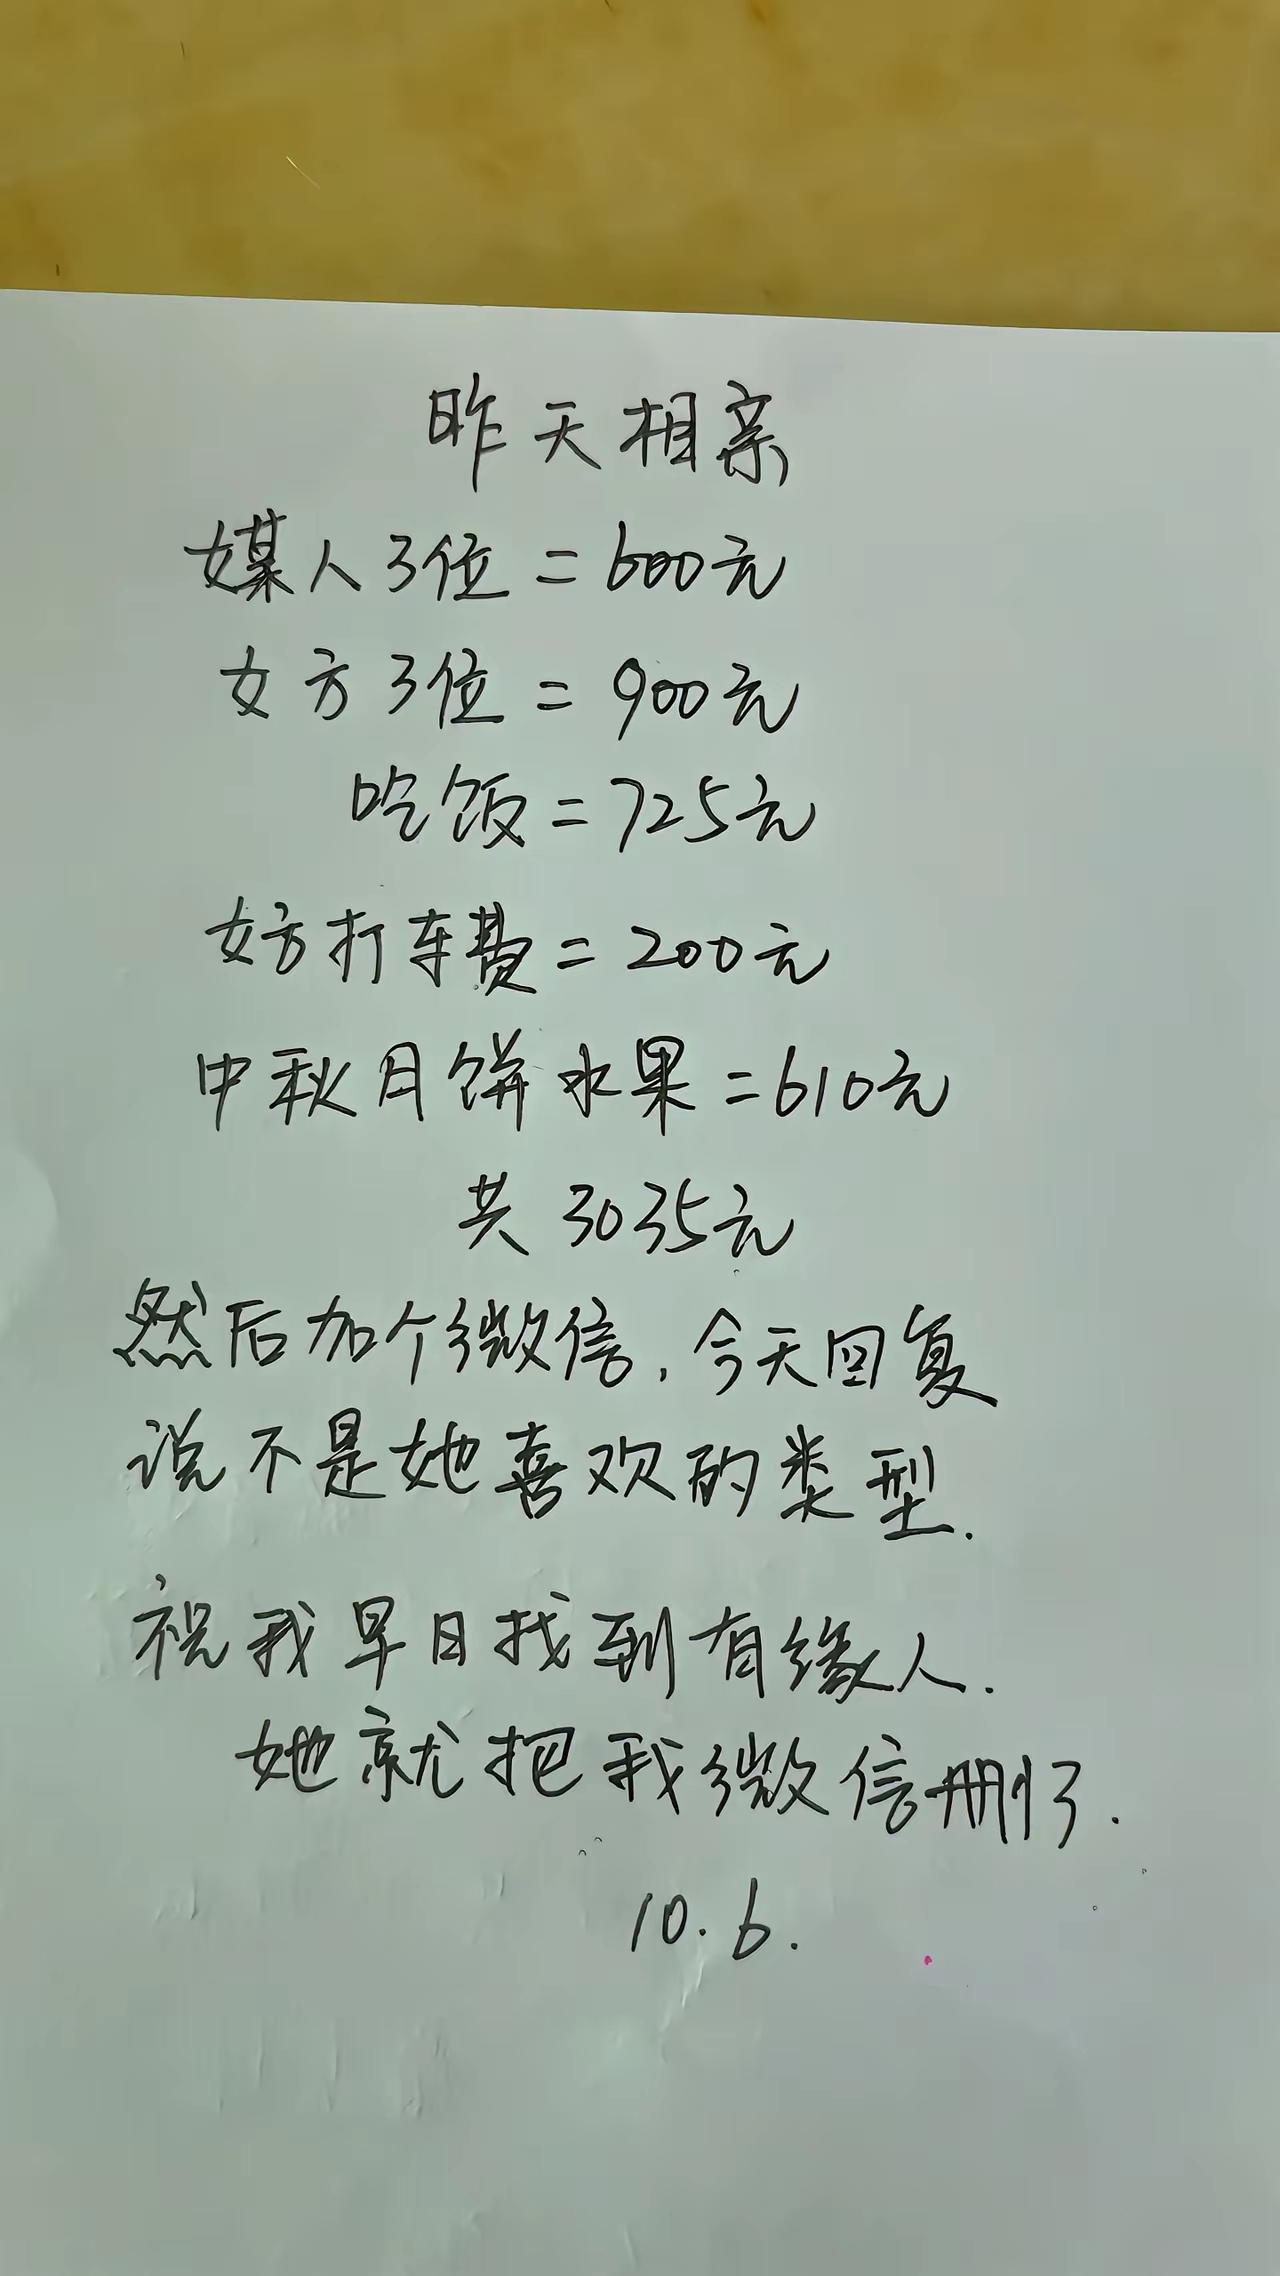 昨天相亲
媒人3位=600元
女方3位=900元
吃饭=725元
女方打车费=200元
中秋月饼水果=610元
共3035元
然后加个微信,今天回复
说不是她喜欢的类型.
祝我早日找到有缘人.
她就把我微信删了.
10.6.